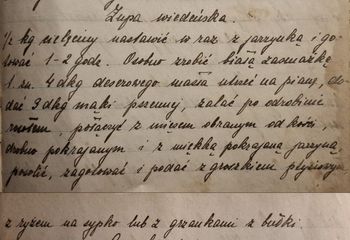 Zupa wiedeńska.
1/2 kg cielęciny nastawić wraz z jarzynką i go-
tować 1-2 godz. Osobno zrobić białą zasmażkę
t. zn. 4 dkg deserowego masła utrzeć na pianę, do-
dać 3 dkg mąki pszennej, zalać po odrobinie
rosołem, połączyć z mięsem obranym od kości,
drobno pokrajanym i z miękką pokrajaną jarzyną,
posolić, zagotować i podać z groszkiem ptysiowym
z ryżem na sypko lub z grzankami z bułki.